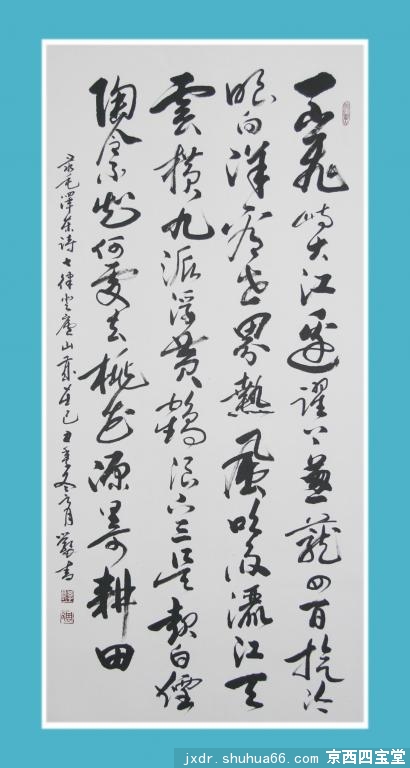 一山飛峙大江邊躍上葱蘢四百旋冷
眼向洋看世界熱風吹雨灑江天
雲横九派浮黄鶴浪下三吴起白煙
陶令不知何處去桃花源裏可耕田
录毛澤东诗七律登廬山 己丑年冬月 書
jxdr.shuhua66.com/京西四宝堂